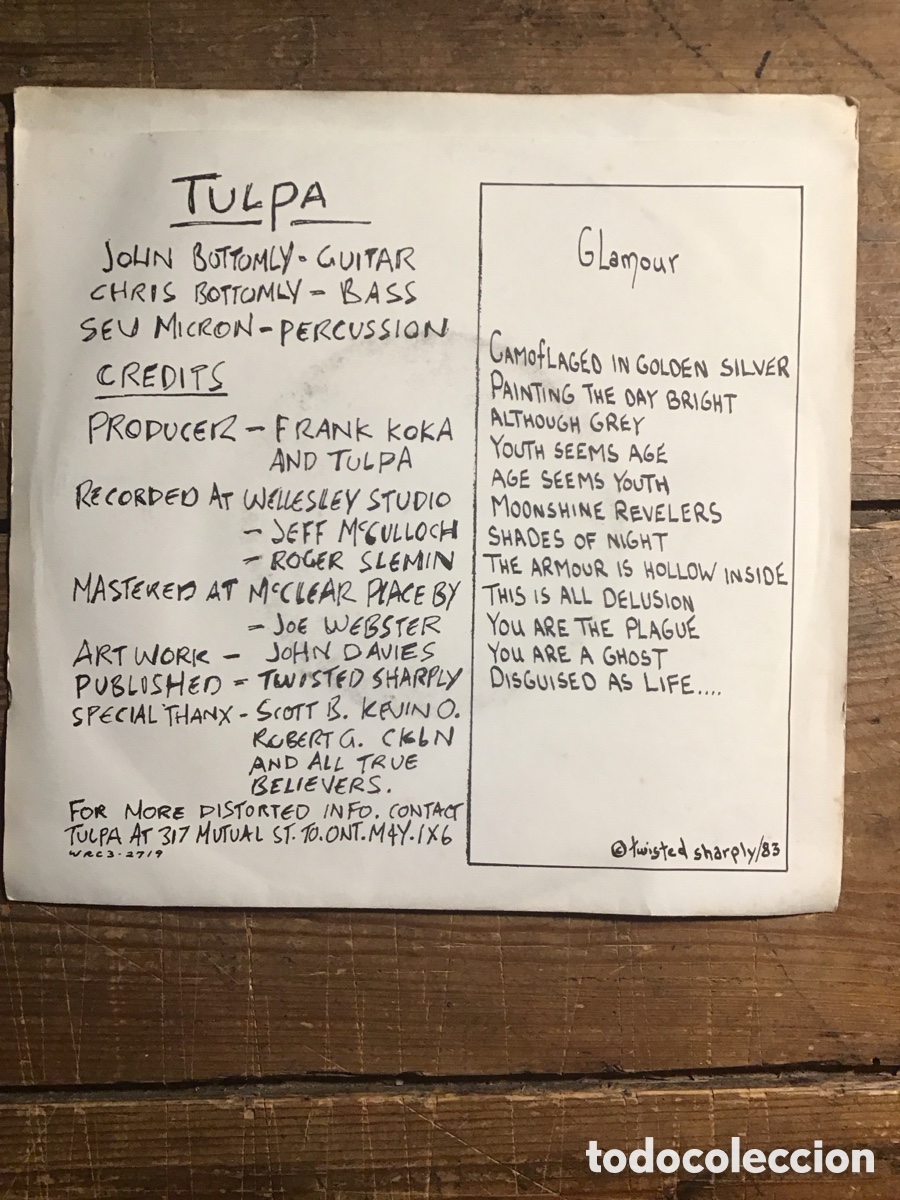 TULPA
JOHN BOTTOMLY - GUITAR
CHRIS BOTTOMLY - BASS
SEV MICRON - PERCUSSION
CREDITS
PRODUCER - FRANK KOKA
AND TULPA
RECORDED AT WELLESLEY STUDIO
- JEFF McCULLOCH
- ROGER SLEMIN
MASTERED AT McCLEAR PLACE BY
- JOE WEBSTER
ART WORK - JOHN DAVIES
PUBLISHED - TWISTED SHARPLY
SPECIAL THANX - SCOTT B. KEVIN O.
ROBERT G. CKLN
AND ALL TRUE
BELIEVERS.
FOR MORE DISTORTED INFO. CONTACT
TULPA AT 317 MUTUAL ST. TO. ONT. M4Y. 1X6
WRC3-2719
GLamour
CAMOFLAGED IN GOLDEN SILVER
PAINTING THE DAY BRIGHT
ALTHOUGH GREY
YOUTH SEEMS AGE
AGE SEEMS YOUTH
MOONSHINE REVELERS
SHADES OF NIGHT
THE ARMOUR IS HOLLOW INSIDE
THIS IS ALL DELUSION
YOU ARE THE PLAGUE
YOU ARE A GHOST
DISGUISED AS LIFE....
© twisted sharply/83
todocoleccion